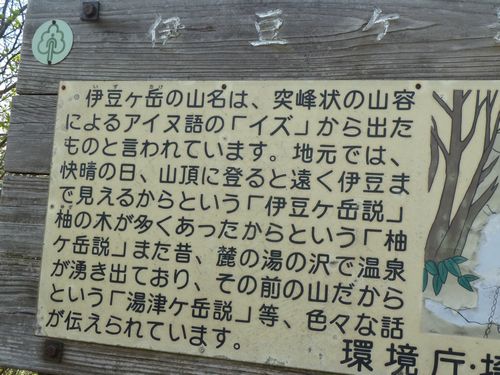 伊豆ヶ
伊豆ヶ岳の山名は、突峰状の山容
によるアイヌ語の「イズ」から出た
ものと言われています。地元では、
快晴の日、山頂に登ると遠く伊豆ま
で見えるからという「伊豆ケ岳説」
柚の木が多くあったからという「柚
ケ岳説」また昔、麓の湯の沢で温泉
が湧き出ており、その前の山だから
という「湯津ケ岳説」等、色々な話
が伝えられています。
環境庁・埼